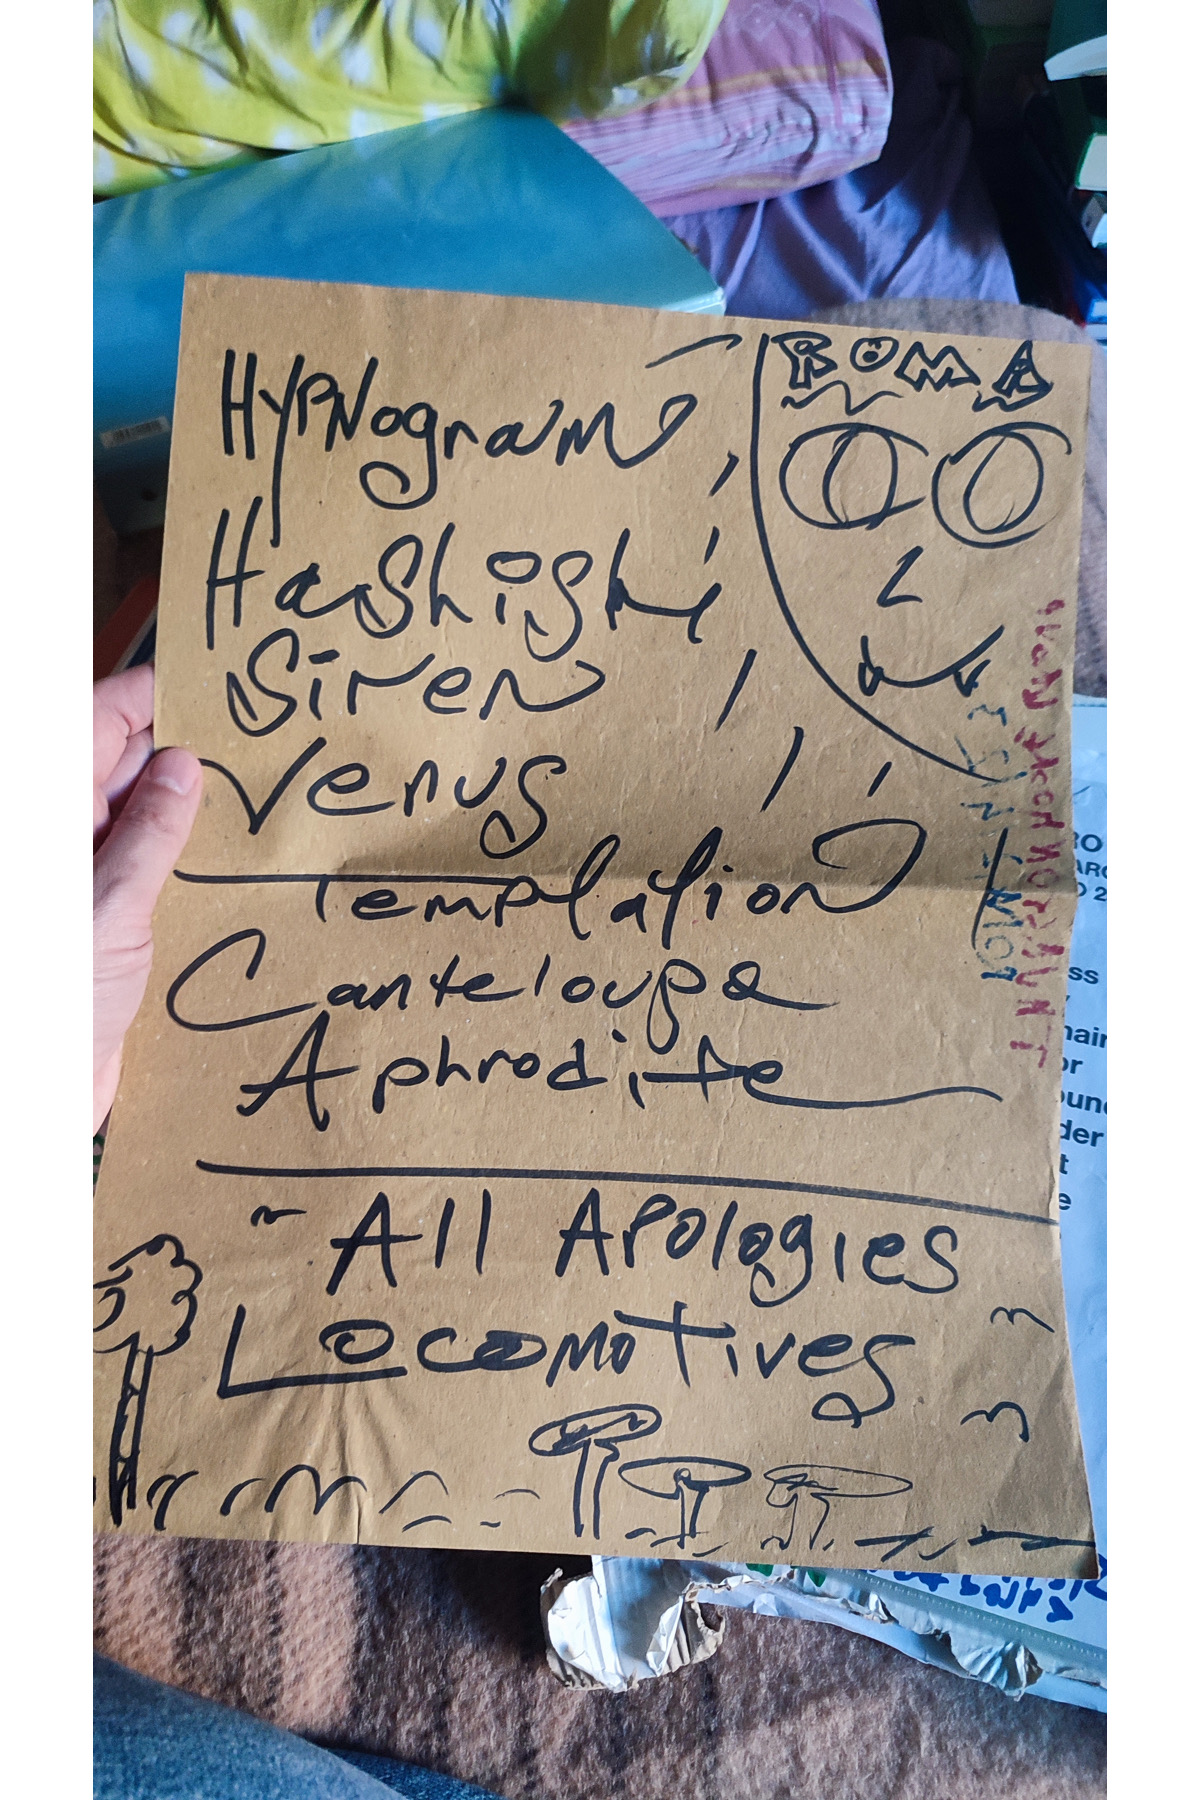 Hypnogram,
ROMA
Hashish
Siren
Venus
Templation
Canteloupe
Aphrodite
~ All Apologies
Locomotives